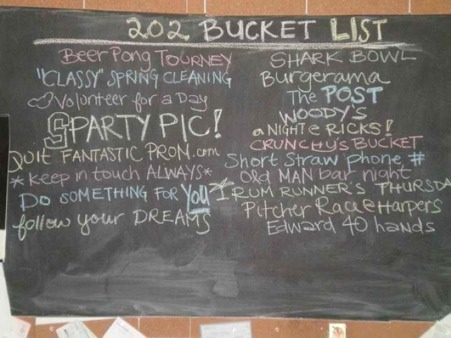 202 BUCKET LIST
Beer Pong TOURNEY
"CLASSY" SPRING CLEANING
Volunteer for a Day
SPARTY PIC!
QUIT FANTASTIC PROM.com
*keep in touch ALWAYS*
DO SOMETHING FOR YOU
follow your DREAMS
SHARK BOWL
Burgerama
The POST
WOODY'S
a NIGHT @ RICKS!
CRUNCHY'S BUCKET
Short Straw phone #
Old MAN bar night
RUM RUNNER'S THURSDA
Pitcher Race @ Harpers
Edward 40 hands